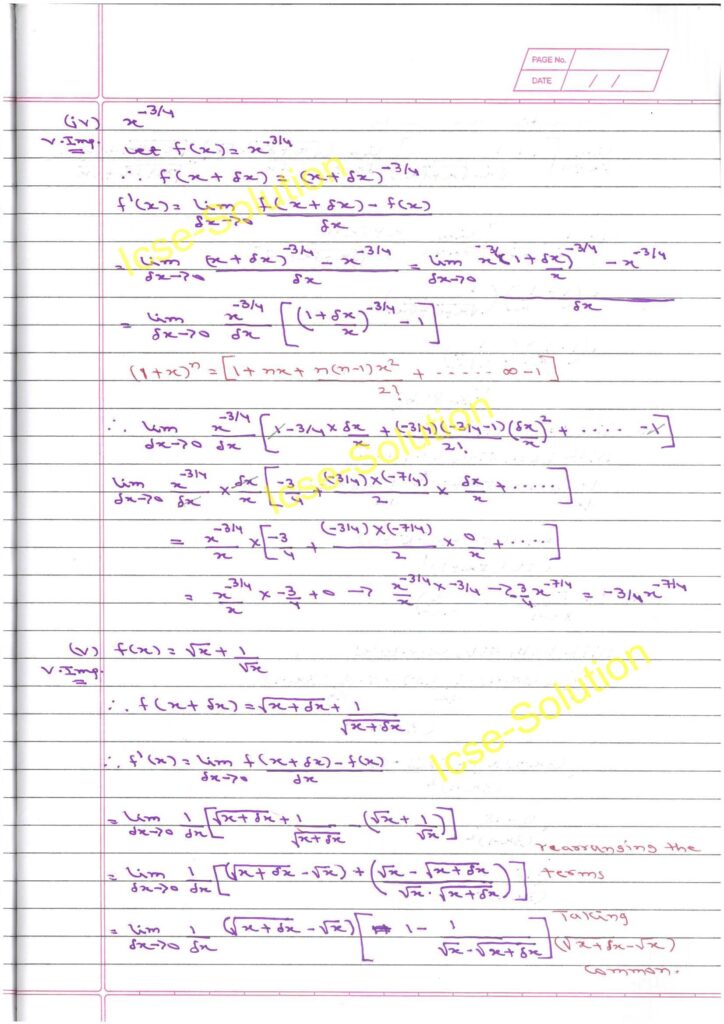 PAGE No.
DATE / /
(iv) x^{-3/4}
v.Imp. Let f(x) = x^{-3/4}
∴ f(x + δx) = (x + δx)^{-3/4}
f'(x) = lim_{δx→0} (f(x + δx) - f(x))/δx
= lim_{δx→0} ((x + δx)^{-3/4} - x^{-3/4})/δx = lim_{δx→0} (x^{-3/4}(1 + δx/x)^{-3/4} - x^{-3/4})/δx
= lim_{δx→0} x^{-3/4}/δx [(1 + δx/x)^{-3/4} - 1]
(1+x)^n = [1 + nx + n(n-1)x^2/2! + ..... ∞ - 1]
∴ lim_{δx→0} x^{-3/4}/δx [1 - 3/4 × δx/x + (-3/4)(-3/4-1)/2! (δx/x)^2 + .... - 1]
lim_{δx→0} x^{-3/4}/δx × δx/x [-3/4 + (-3/4)×(-7/4)/2 × δx/x + .....]
= x^{-3/4}/x × [-3/4 + (-3/4)×(-7/4)/2 × 0/x + ....]
= x^{-3/4}/x × -3/4 + 0 → x^{-3/4}/x × -3/4 → -3/4 x^{-7/4} = -3/4 x^{-7/4}
(v) f(x) = √x + 1/√x
v.Imp.
∴ f(x + δx) = √(x+δx) + 1/√(x+δx)
∴ f'(x) = lim_{δx→0} (f(x + δx) - f(x))/δx
= lim_{δx→0} 1/δx [√(x+δx) + 1/√(x+δx) - (√x + 1/√x)]
rearranging the
= lim_{δx→0} 1/δx [(√(x+δx) - √x) + ((√x - √(x+δx))/(√x · √(x+δx)))] terms
= lim_{δx→0} 1/δx (√(x+δx) - √x) [1 - 1/(√x - √(x+δx))] Taking
(√x+δx-√x)
common.
Icse-Solution
Icse-Solution
Icse-Solution